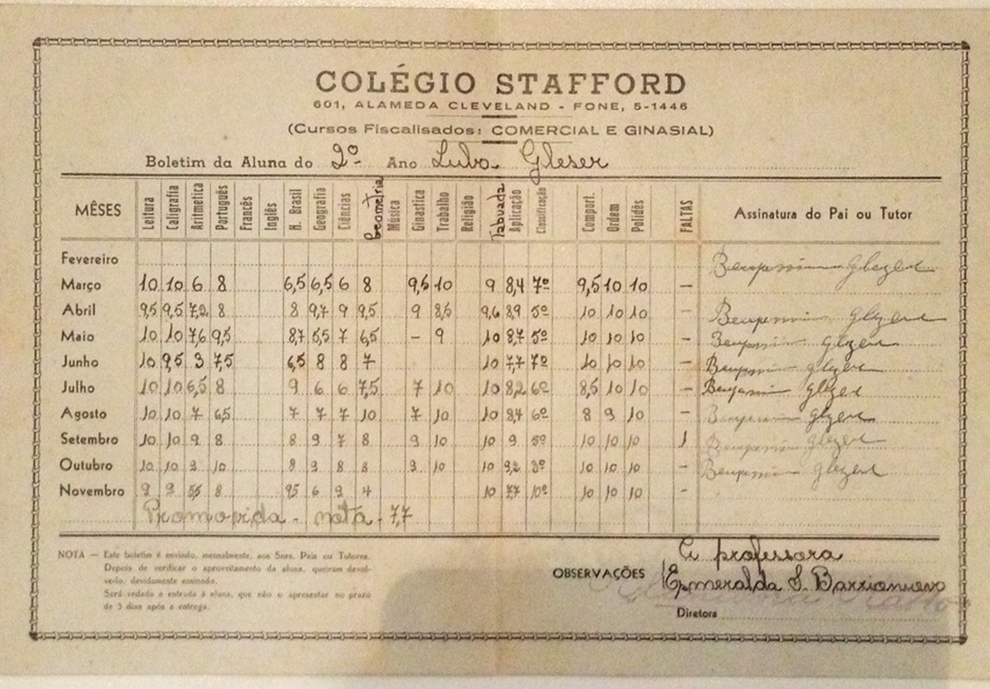 COLÉGIO STAFFORD
601, ALAMEDA CLEVELAND - FONE, 5-1446
(Cursos Fiscalisados: COMERCIAL E GINASIAL)
Boletim da Aluna do 2º Ano Luba Gleser
MÊSES Leitura Caligrafia Aritmetica Português Francês Inglês H. Brasil Geografia Ciências Geometria Música Ginastica Trabalho Religião Tabuada Aplicação Classificação Comport. Ordem Polidês FALTAS Assinatura do Pai ou Tutor
Fevereiro Benjamin Glezer
Março 10 10 6 8 6,5 6,5 6 8 9,5 10 9 8,4 7º 9,5 10 10 -
Abril 9,5 9,5 7,2 8 8 9,7 9 9,5 9 8,5 9,6 8,9 5º 10 10 10 - Benjamin Glezer
Maio 10 10 7,6 9,5 8,7 5,5 7 6,5 - 9 10 8,7 5º 10 10 10 - Benjamin Glezer
Junho 10 9,5 3 7,5 6,5 8 8 7 10 7,7 7º 10 10 10 - Benjamin Glezer
Julho 10 10 6,5 8 9 6 6 7,5 7 10 10 8,2 6º 8,5 10 10 - Benjamin Glezer
Agosto 10 10 7 6,5 7 7 7 10 7 10 10 8,4 6º 8 9 10 - Benjamin Glezer
Setembro 10 10 9 8 8 9 7 8 9 10 10 9 5º 10 10 10 1 Benjamin Glezer
Outubro 10 10 9 10 8 9 8 8 9 10 10 9,2 3º 10 10 10 - Benjamin Glezer
Novembro 9 9 5,5 8 9,5 6 9 4 10 7,7 10º 10 10 10 -
Promovida - nota - 7,7
NOTA — Este boletim é enviado, mensalmente, aos Snrs. Pais ou Tutores.
Depois de verificar o aproveitamento da aluna, queiram devol-
ve-lo, devidamente assinado.
Será vedada a entrada á aluna, que não o apresentar no prazo
de 3 dias após a entrega.
A professora
OBSERVAÇÕES Esmeralda S. Barrionuevo
Diretora